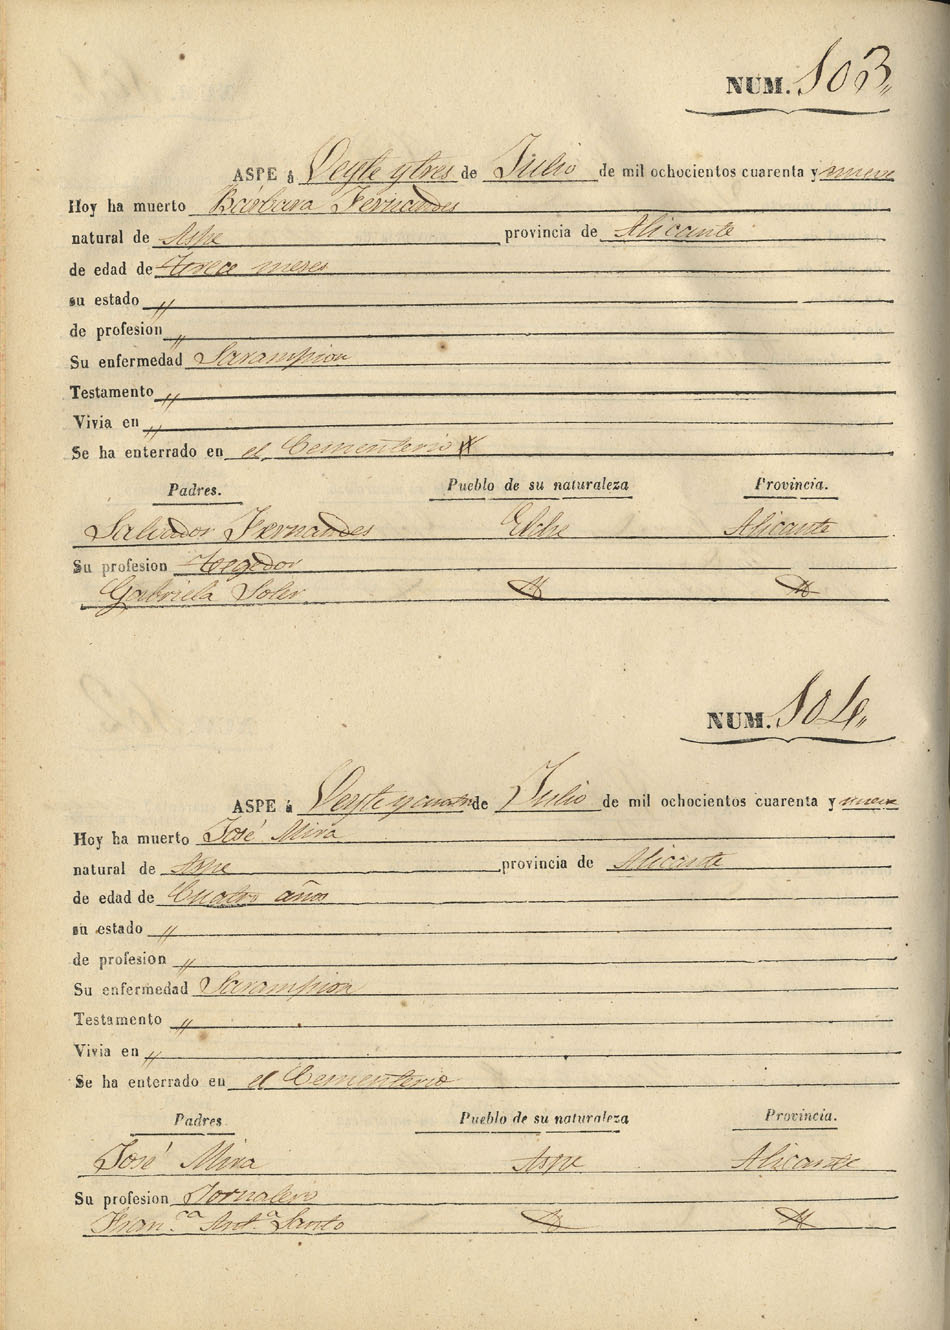 NUM. 103„
ASPE á Veyte y tres de Julio de mil ochocientos cuarenta y nueve
Hoy ha muerto Bárbara Fernandes
natural de Aspe provincia de Alicante
de edad de Terece meses
su estado „
de profesion „
Su enfermedad Sarampion
Testamento „
Vivia en „
Se ha enterrado en el Cementerio
Padres. Pueblo de su naturaleza Provincia.
Salvador Fernandes Elche Alicante
Su profesion Tegedor
Gabriela Soler
NUM. 104„
ASPE á Veyte y cuatro de Julio de mil ochocientos cuarenta y nueve
Hoy ha muerto José Mira
natural de Aspe provincia de Alicante
de edad de Cuatro años
su estado „
de profesion „
Su enfermedad Sarampion
Testamento „
Vivia en „
Se ha enterrado en el Cementerio
Padres. Pueblo de su naturaleza Provincia.
José Mira Aspe Alicante
Su profesion Jornalero
Fran.ca Ant.a Santo